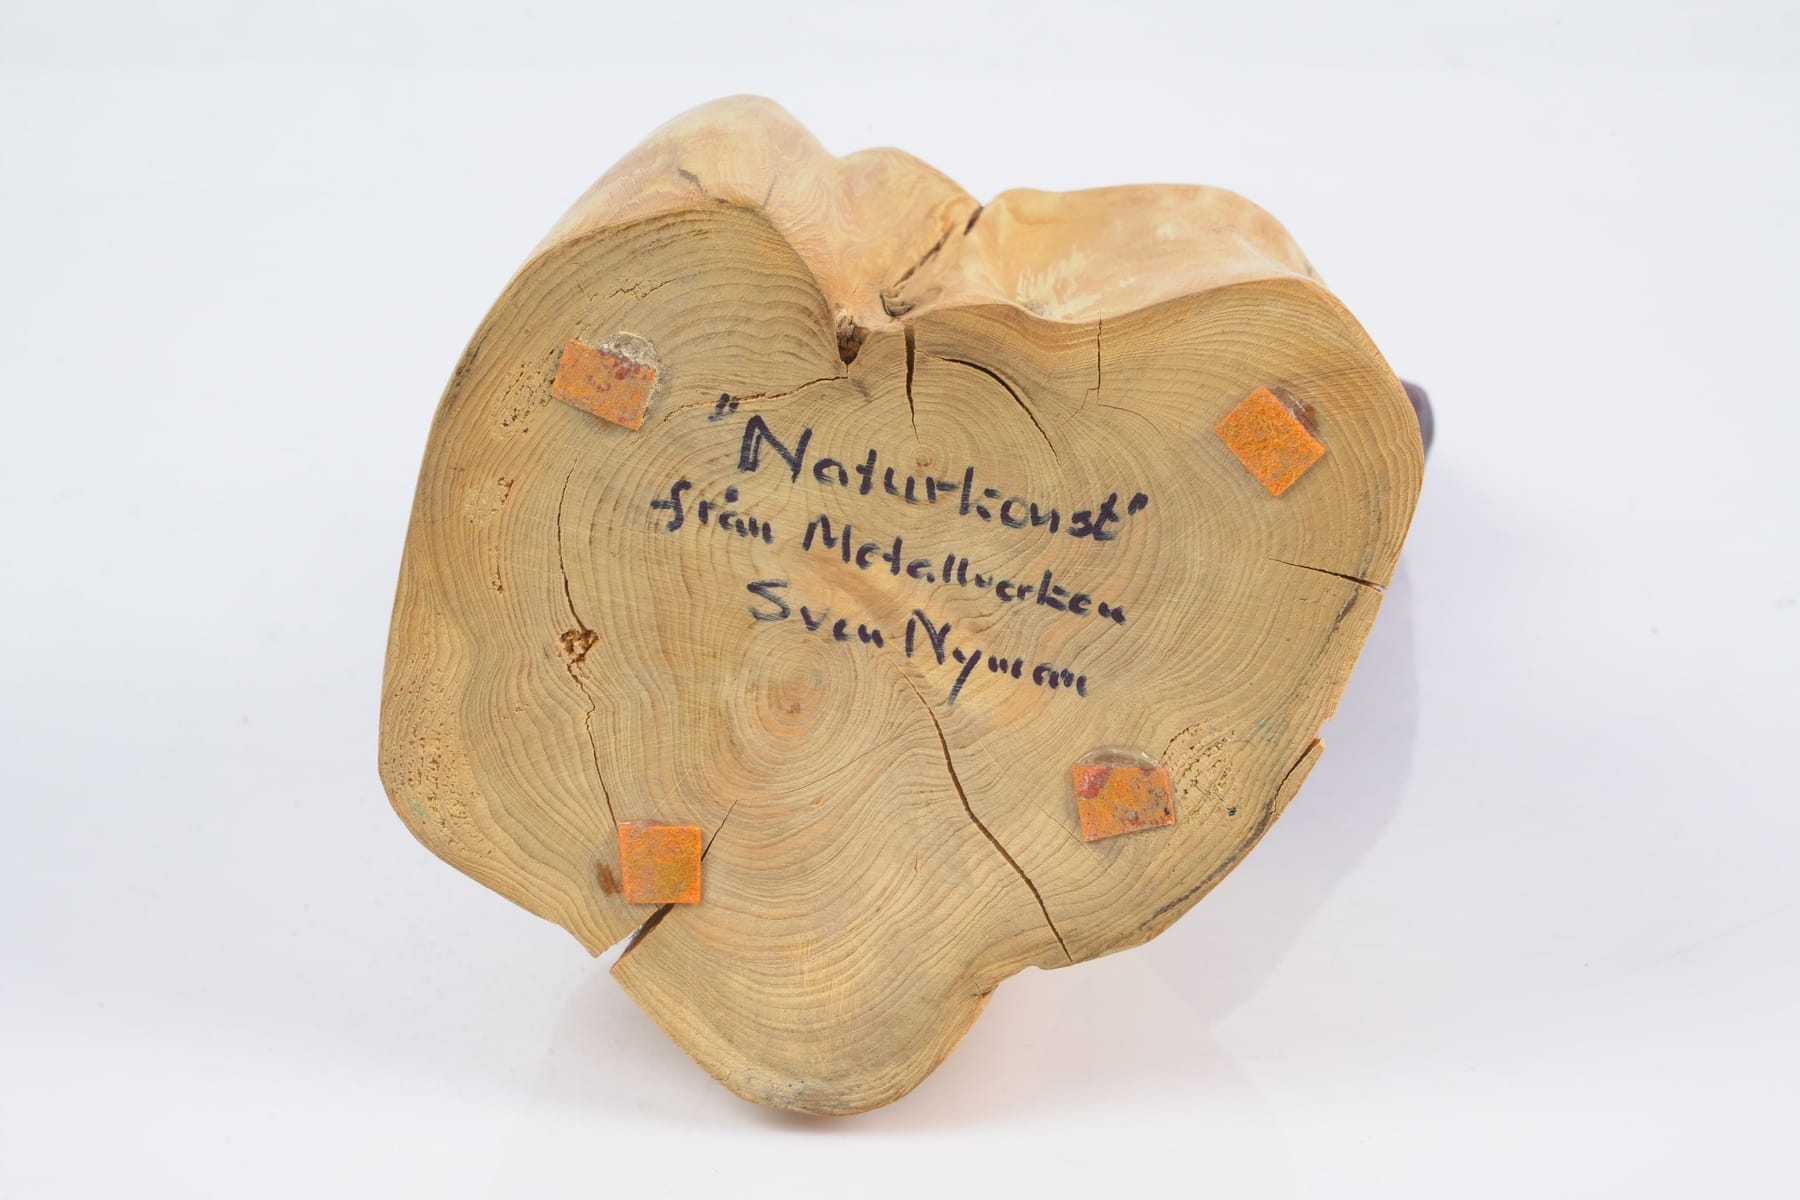 "Naturkonst"
från Metallverken
Sven Nyman